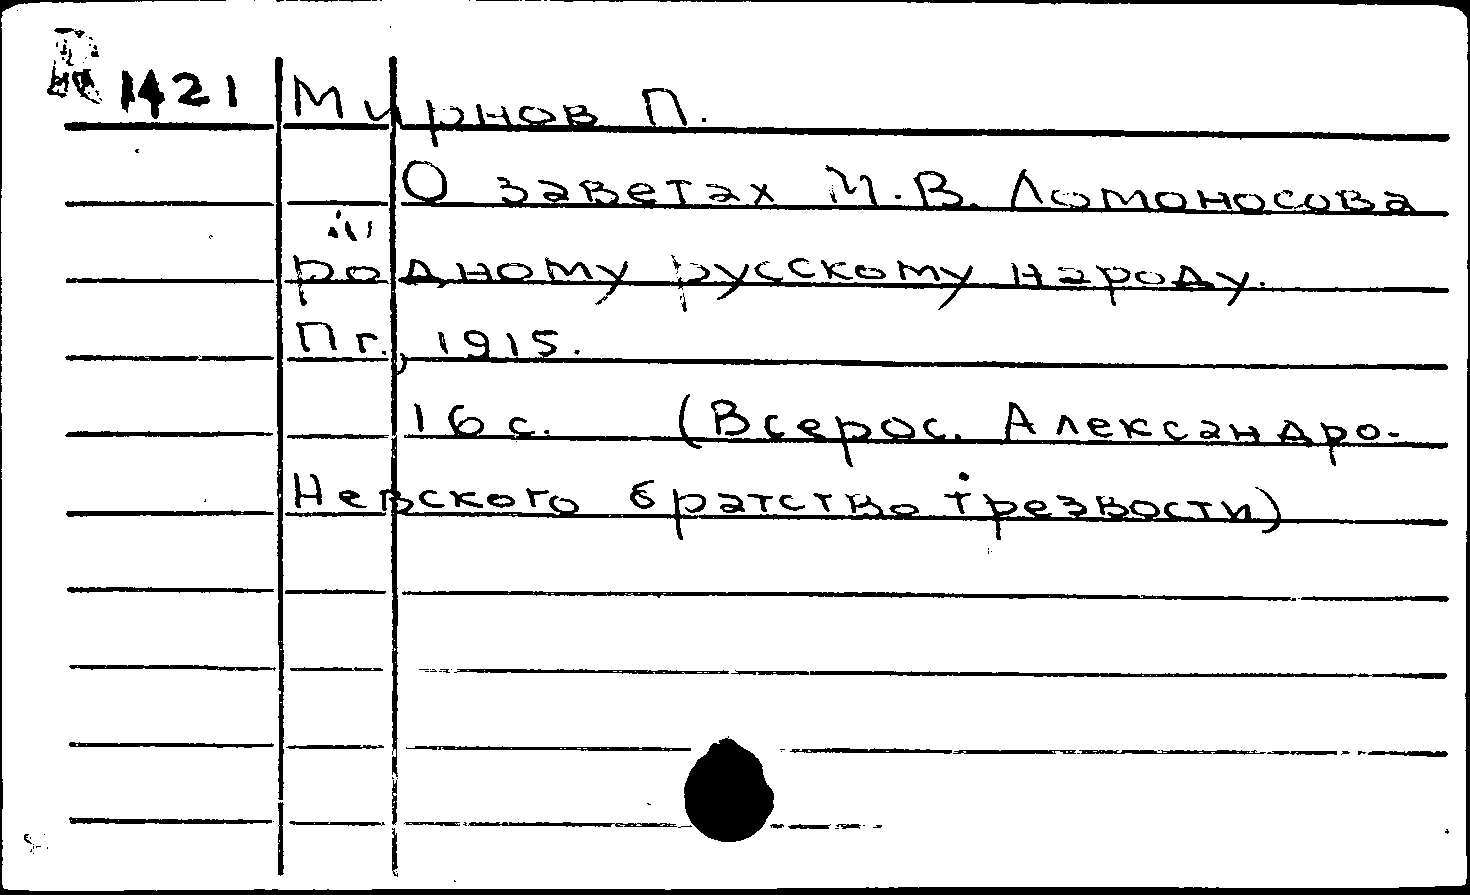 R 1421 Мирнов П.
О заветах М.В. Ломоносова
родному русскому народу.
Пг., 1915.
16 с. (Всерос. Александро-
Невского братство трезвости)